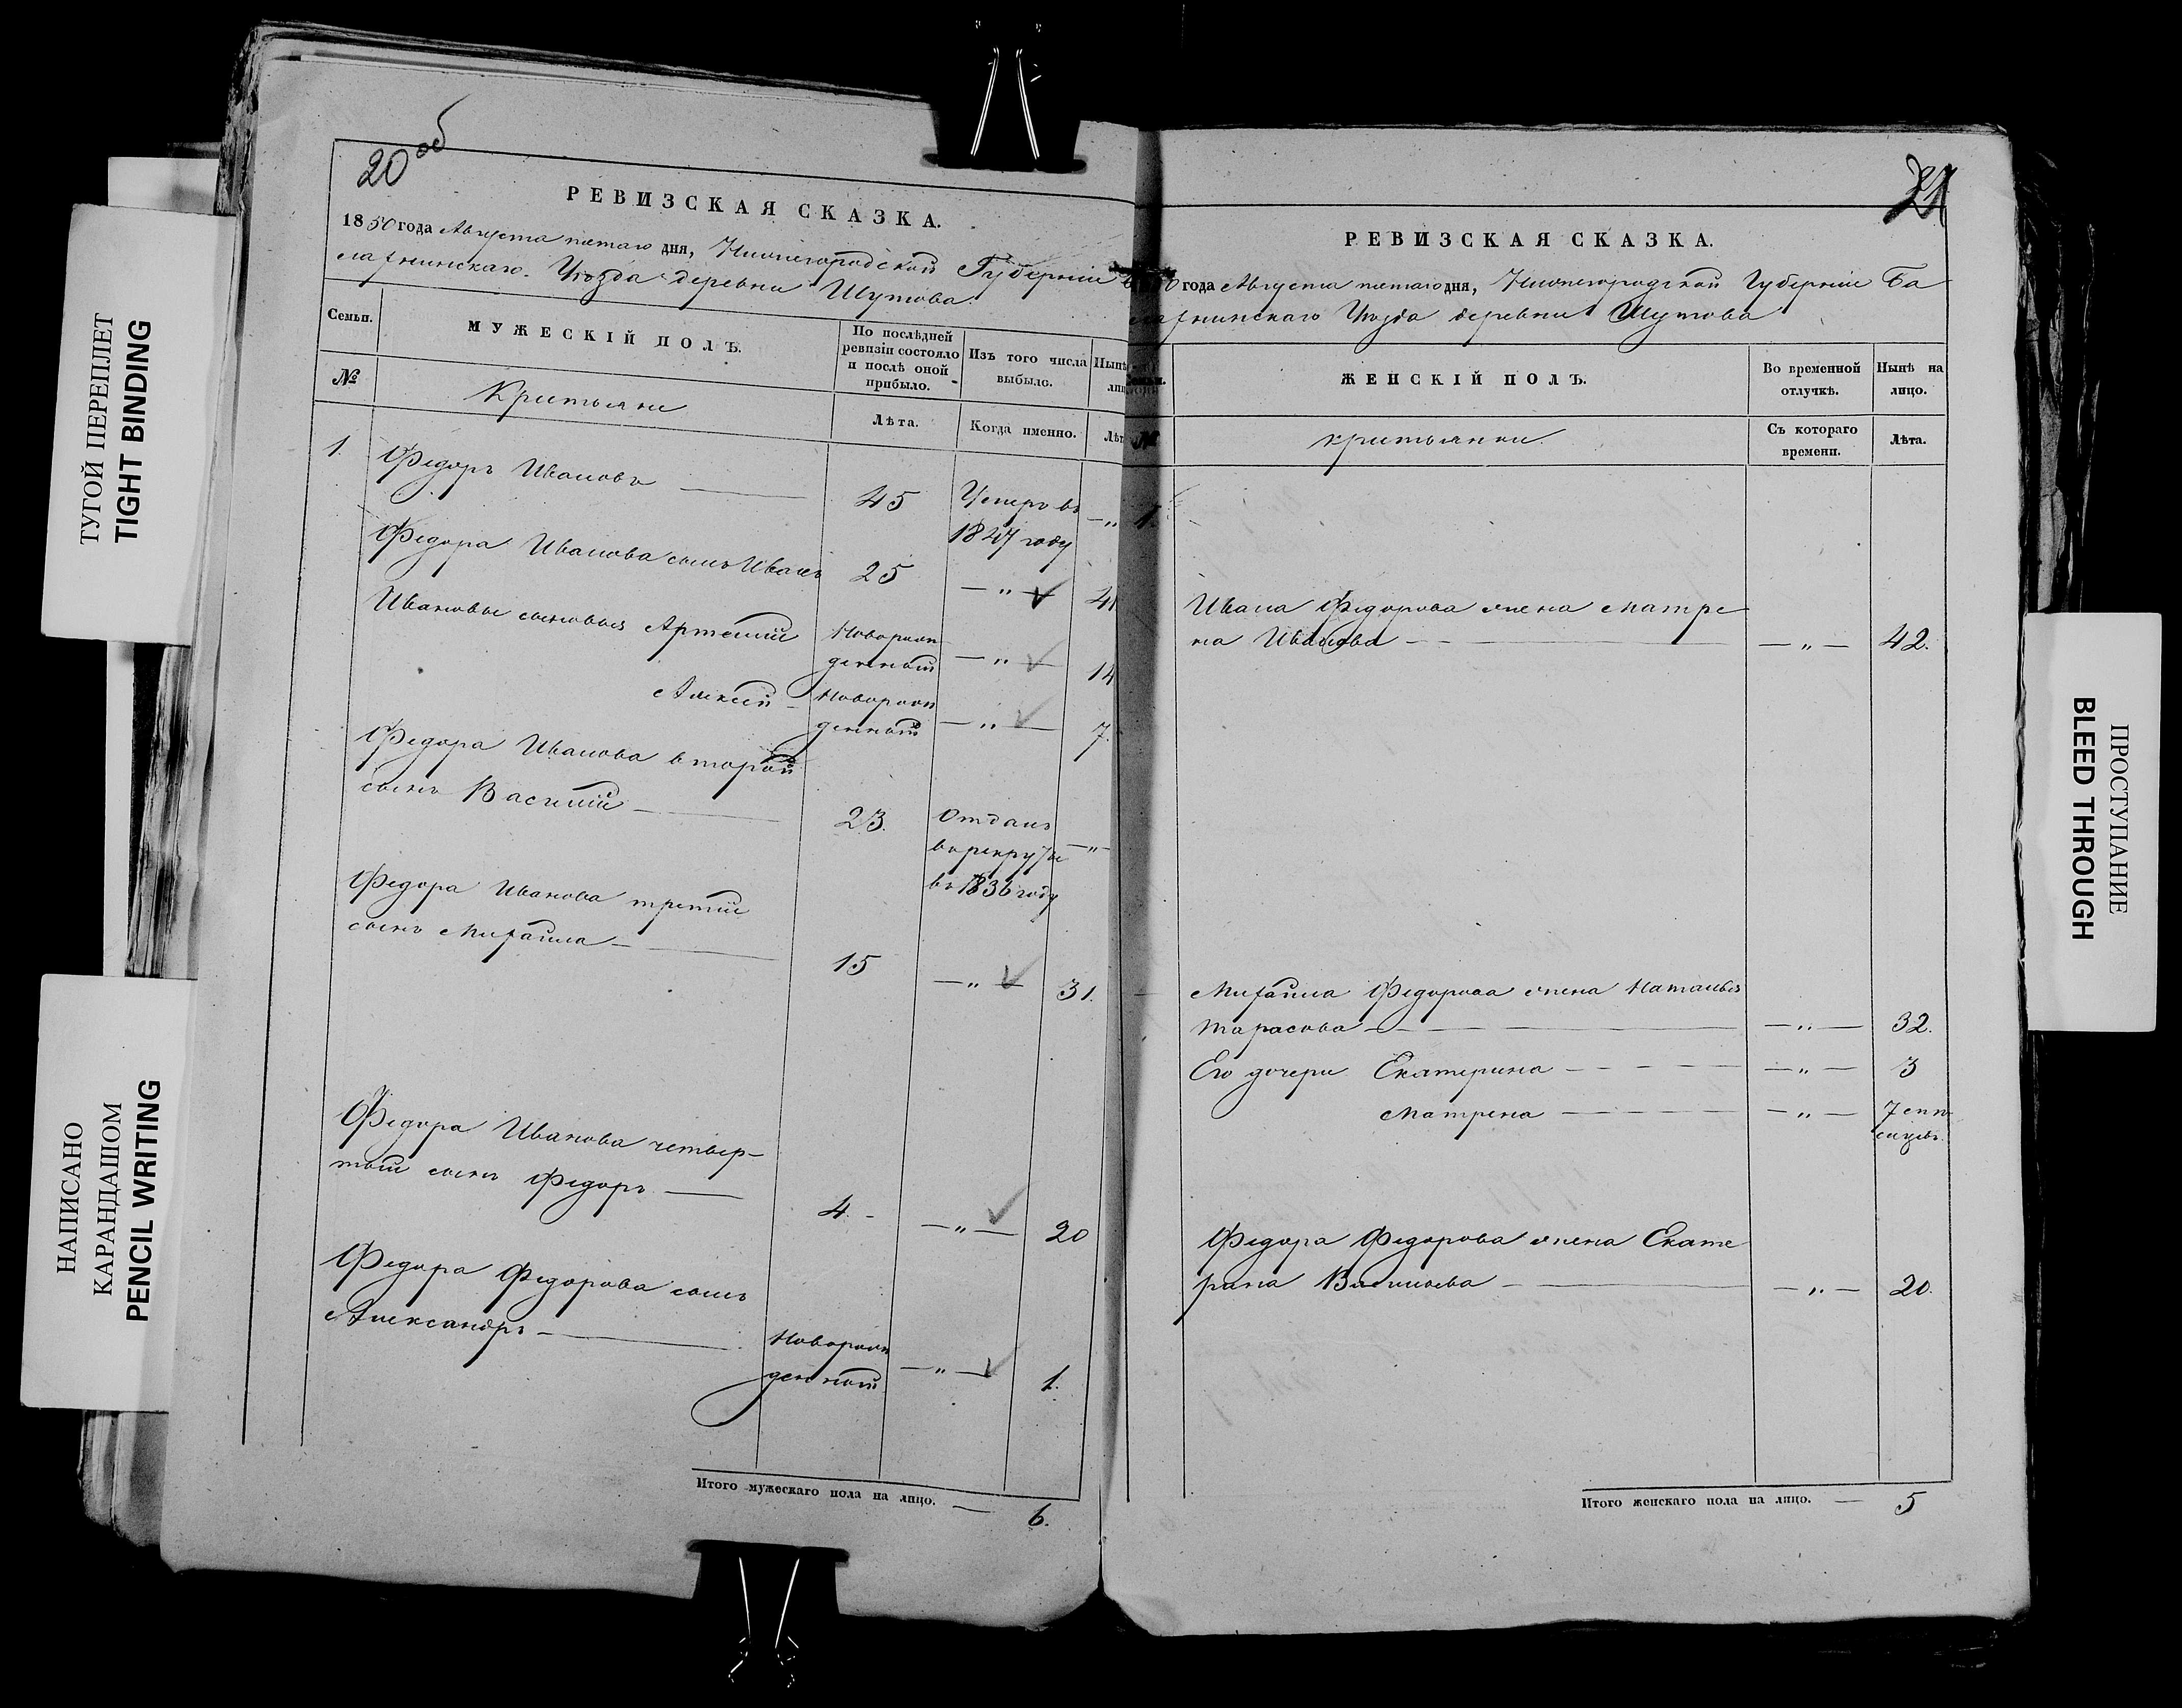 ТУГОЙ ПЕРЕПЛЕТ
TIGHT BINDING
НАПИСАНО
КАРАНДАШОМ
PENCIL WRITING
20 об
РЕВИЗСКАЯ СКАЗКА.
1850 года Августа пятаго дня, Нижегородской Губернiи Ба
лахнинскаго Уѣзда деревни Шутова
Семьи.
МУЖЕСКІЙ ПОЛЪ.
По послѣдней
ревизіи состояло
и послѣ оной
прибыло.
Изъ того числа
выбыло.
Нынѣ
№
Крестьяне
Лѣта.
Когда именно.
Лѣт
1.
Федоръ Ивановъ
45
Умеръ въ
1847 году
Федора Иванова сынъ Иванъ
25
41
Ивановы сыновья Артемiй
Новорож
денный
14
Алексей
Новорож
денный
7.
Федора Иванова второй
сынъ Василiй
23.
Отданъ
в рекруты
въ 1836 году
Федора Иванова третiй
сынъ Михайла
15
31.
Федора Иванова четвер-
тый сынъ Федоръ
4
20
Федора Федорова сынъ
Александръ
Новорож
денный
1.
Итого мужескаго пола на лицо.
6.
21
РЕВИЗСКАЯ СКАЗКА.
года Августа пятаго дня, Нижегородской Губернiи Ба
лахнинскаго Уѣзда деревни Шутова
ЖЕНСКІЙ ПОЛЪ.
Во временной
отлучкѣ.
Нынѣ на
лицо.
№
крестьянки.
Съ котораго
времени.
Лѣта.
1.
Ивана Федорова жена Матре
на Иванова
42.
Михайла Федорова жена Наталья
Тарасова
32.
Его дочери Екатерина
3
Матрена
7
Федора Федорова жена Екате
рина Васильева
20.
Итого женскаго пола на лицо.
5
ПРОСТУПАНИЕ
BLEED THROUGH